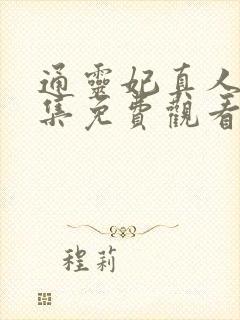 通靈妃真人
集免費觀看
程莉